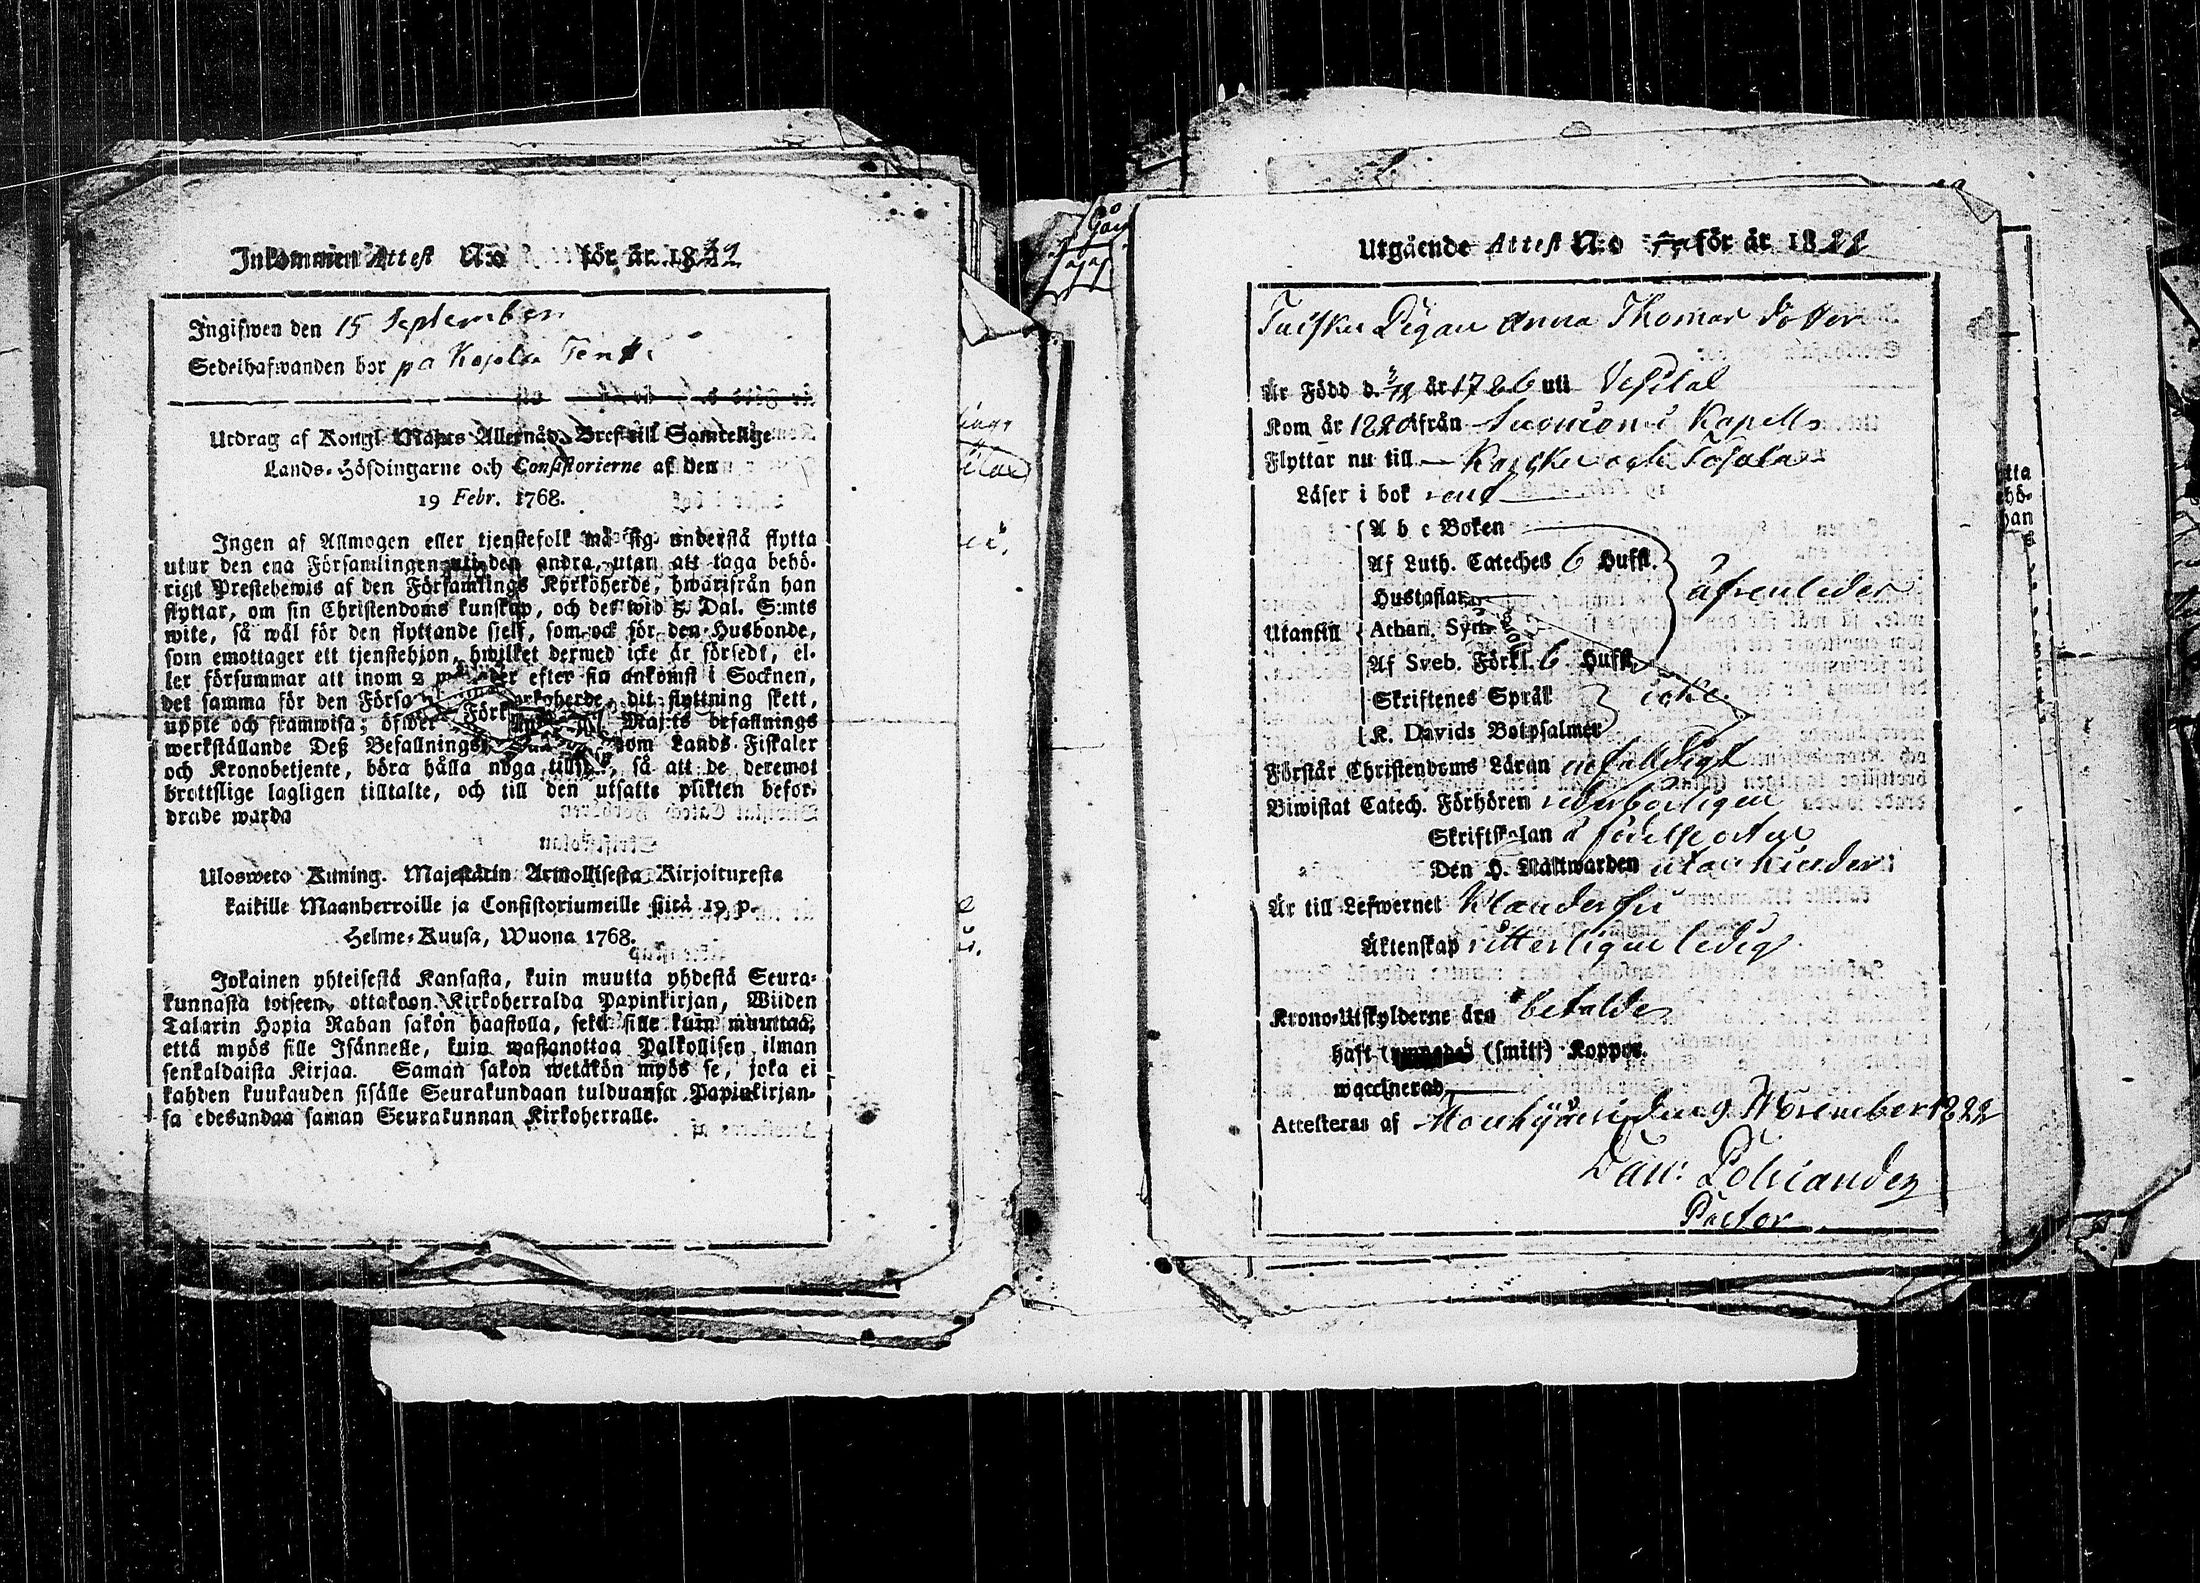 Inkommen Attest N:o för år 1822
Ingifwen den 15 September
Sedelhafwanden bor på
Utdrag af Kongl. Maj:ts Allernåd. Bref till Samtelige
Lands-Höfdingarne och Consistorierne af den
19 Febr. 1768.
Ingen af Allmogen eller tjenstefolk må sig understå flytta
utur den ena Församlingen uti den andra, utan att taga behö-
rigt Prestebewis af den Församlings Kyrkoherde, hwarifrån han
flyttar, om sin Christendoms kunskap, och det wid 5 Dal. S:mts
wite, så wäl för den flyttande sjelf, som ock för den Husbonde,
som emottager ett tjenstehjon, hwilket dermed icke är försedt, el-
ler försummar att inom 2 månader efter sin ankomst i Socknen,
det samma för den Förs Kyrkoherde, dit flyttning skett,
uppte och framwisa; öfwer Maj:ts befallnings
werkställande Deß Befallnings som Lands Fiskaler
och Kronobetjente, böra hålla noga tillsyn, så att de deremot
brottslige lagligen tilltalte, och till den utsatte plikten befor-
drade warda
Ulosweto Kuning. Majestätin Armollisesta Kirjoituxesta
kaikille Maanherroille ja Consistoriumeille siitä 19 p.
Helme-Kuusa, Wuona 1768.
Jokainen yhteisestä Kansasta, kuin muutta yhdestä Seura-
kunnasta toiseen, ottakoon Kirkoherralda Papinkirjan, Wiiden
Talarin Hopia Rahan sakon haastolla, sekä sille kuin muuttaa,
että myös sille Isännelle, kuin wastanottaa Palkollisen ilman
senkaldaista Kirjaa. Saman sakon wetäkön myös se, joka ei
kahden kuukauden sisälle Seurakundaan tulduansa Papinkirjan-
sa edesandaa saman Seurakunnan Kirkoherralle.
Utgående Attest N:o för år 1822
Pigan Anna Thomas dotter
Är Född d. år 1786 uti
Kom år 1820 ifrån Suoniemi Kapell
Flyttar nu till
Läser i bok rent
A b c Boken
Af Luth. Cateches 6 Hufst.
Hustaflan
Utantill Athan. Sym. äfwenledes
Af Sveb. Förkl. 6 Hufst.
Skriftenes Språk icke
K. Davids Botpsalmer
Förstår Christendoms Läran enfaldigt
Biwistat Catech. Förhören
Skriftskolan å födelseorten
Den H. Nattwarden utan hinder
Är till Lefwernet Klanderfri
Äktenskap ledig
Krono-Utskylderne äro betalde
haft (smitt) Koppor.
waccinerad
Attesteras af Mouhijärvi den 9 November 1822
Dan: Polviander
Pastor